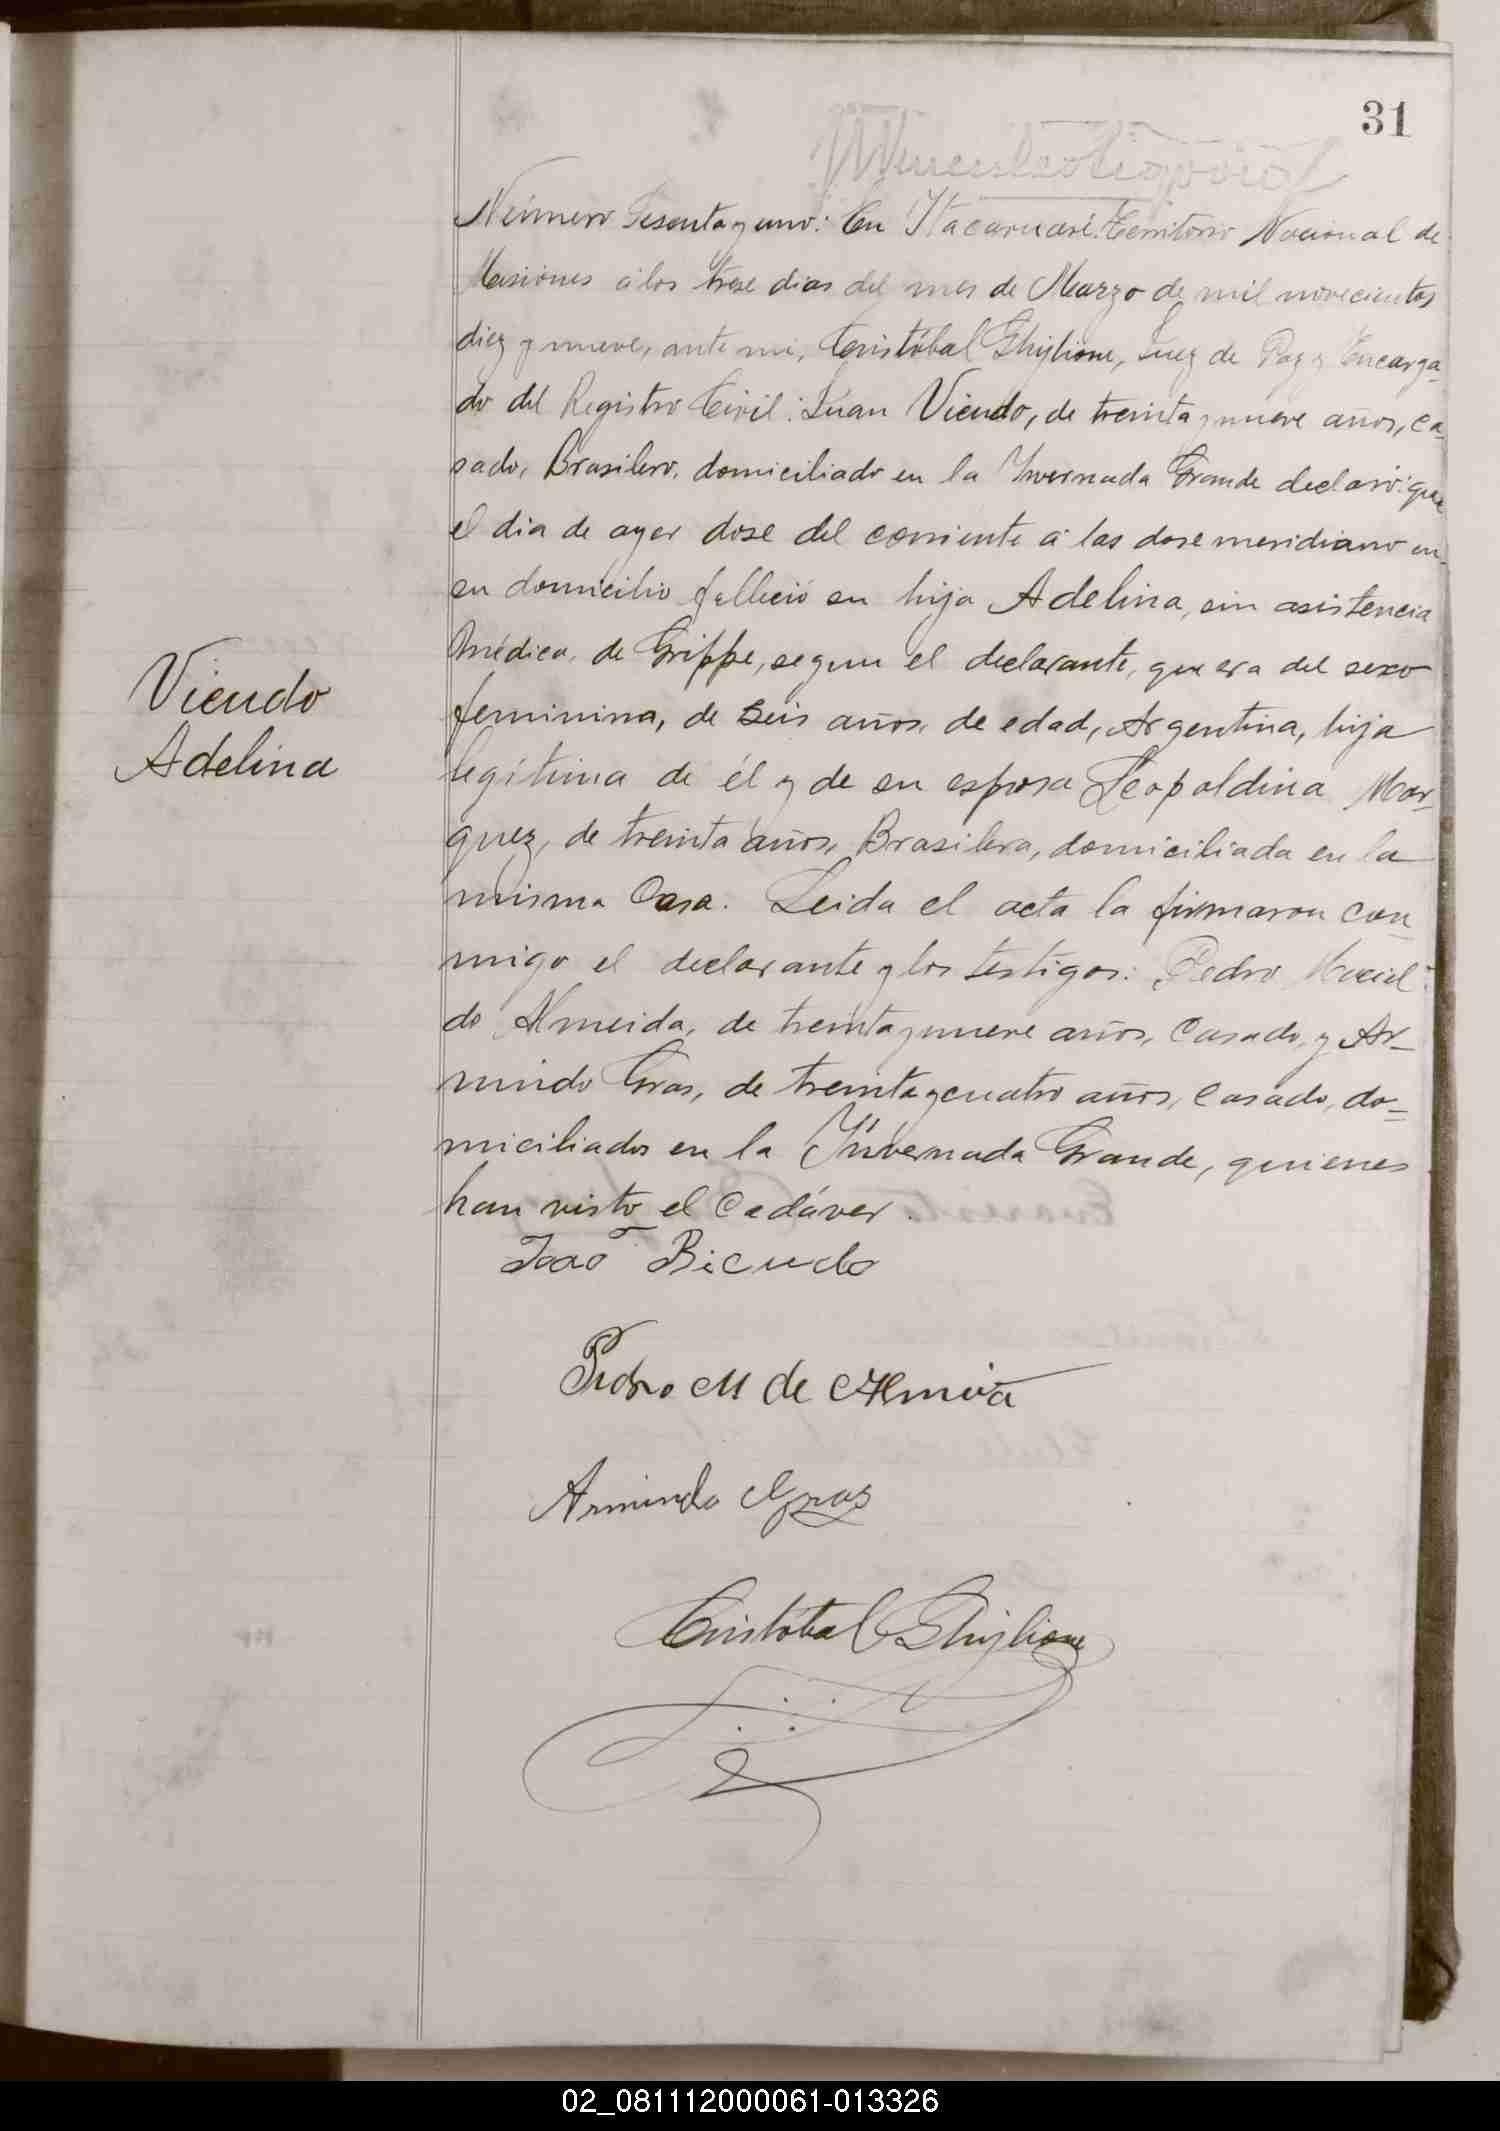 31
Número Sesentayuno: En Itacaruaré. Territorio Nacional de
Misiones á los trese dias del mes de Marzo de mil novecientos
diez y nueve, ante mi, Cristóbal Ghiglione, Juez de Paz y Encarga-
do del Registro Civil: Juan Vicudo, de treinta y nueve años, ca-
sado, Brasilero, domiciliado en la Invernada Grande declaró: que
el dia de ayer dose del corriente á las dose meridiano en
su domicilio falleció su hija Adelina, sin asistencia
médica, de Grippe, segun el declarante, que era del sexo
feminina, de seis años, de edad, Argentina, hija
legítima de él y de su esposa Leopoldina Mar-
quez, de treinta años, Brasilera, domiciliada en la
misma Casa. Leida el acta la firmaron con-
migo el declarante y los testigos: Pedro Maciel
de Almeida, de treinta y nueve años, Casado, y Ar-
mindo Gras, de treinta y cuatro años, Casado, do-
miciliados en la Invernada Grande, quienes
han visto el Cadáver.
Vicudo
Adelina
João Bicudo
Pedro M de Almeida
Armindo Gras
Cristóbal Ghiglione
02_081112000061-013326